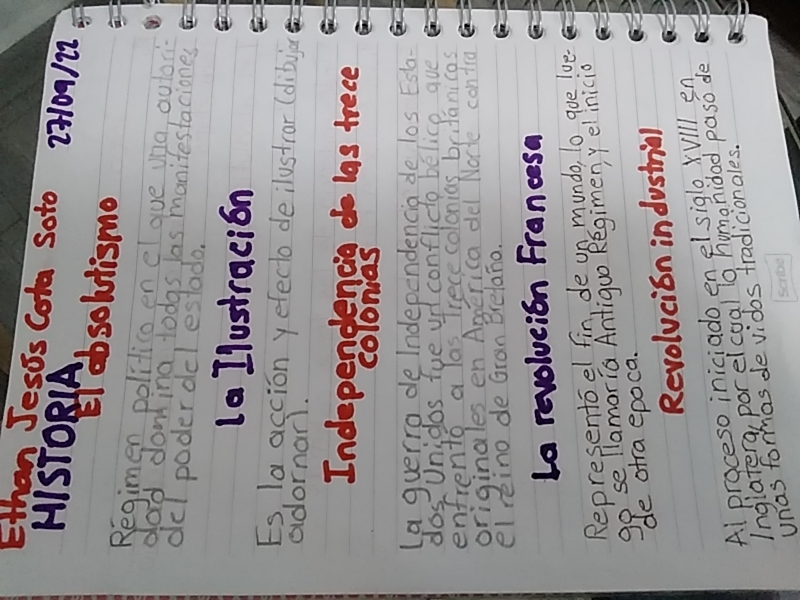 Ethan Jesús Cota Soto
HISTORIA 27/09/22
El absolutismo
Régimen político en el que una autori-
dad domina todas las manifestaciones
del poder del estado.
La Ilustración
Es la acción y efecto de ilustrar (dibujar
adornar).
Independencia de las trece
colonias
La guerra de Independencia de los Esta-
dos Unidos fue un conflicto bélico que
enfrentó a las trece colonias británicas
originales en América del Norte contra
el reino de Gran Bretaña.
La revolución Francesa
Representó el fin de un mundo, lo que lue-
go se llamaría Antiguo Régimen, y el inicio
de otra epoca.
Revolución industrial
Al proceso iniciado en el siglo XVIII en
Inglatera, por el cual la humanidad pasó de
unas formas de vidas tradicionales.
Scribe